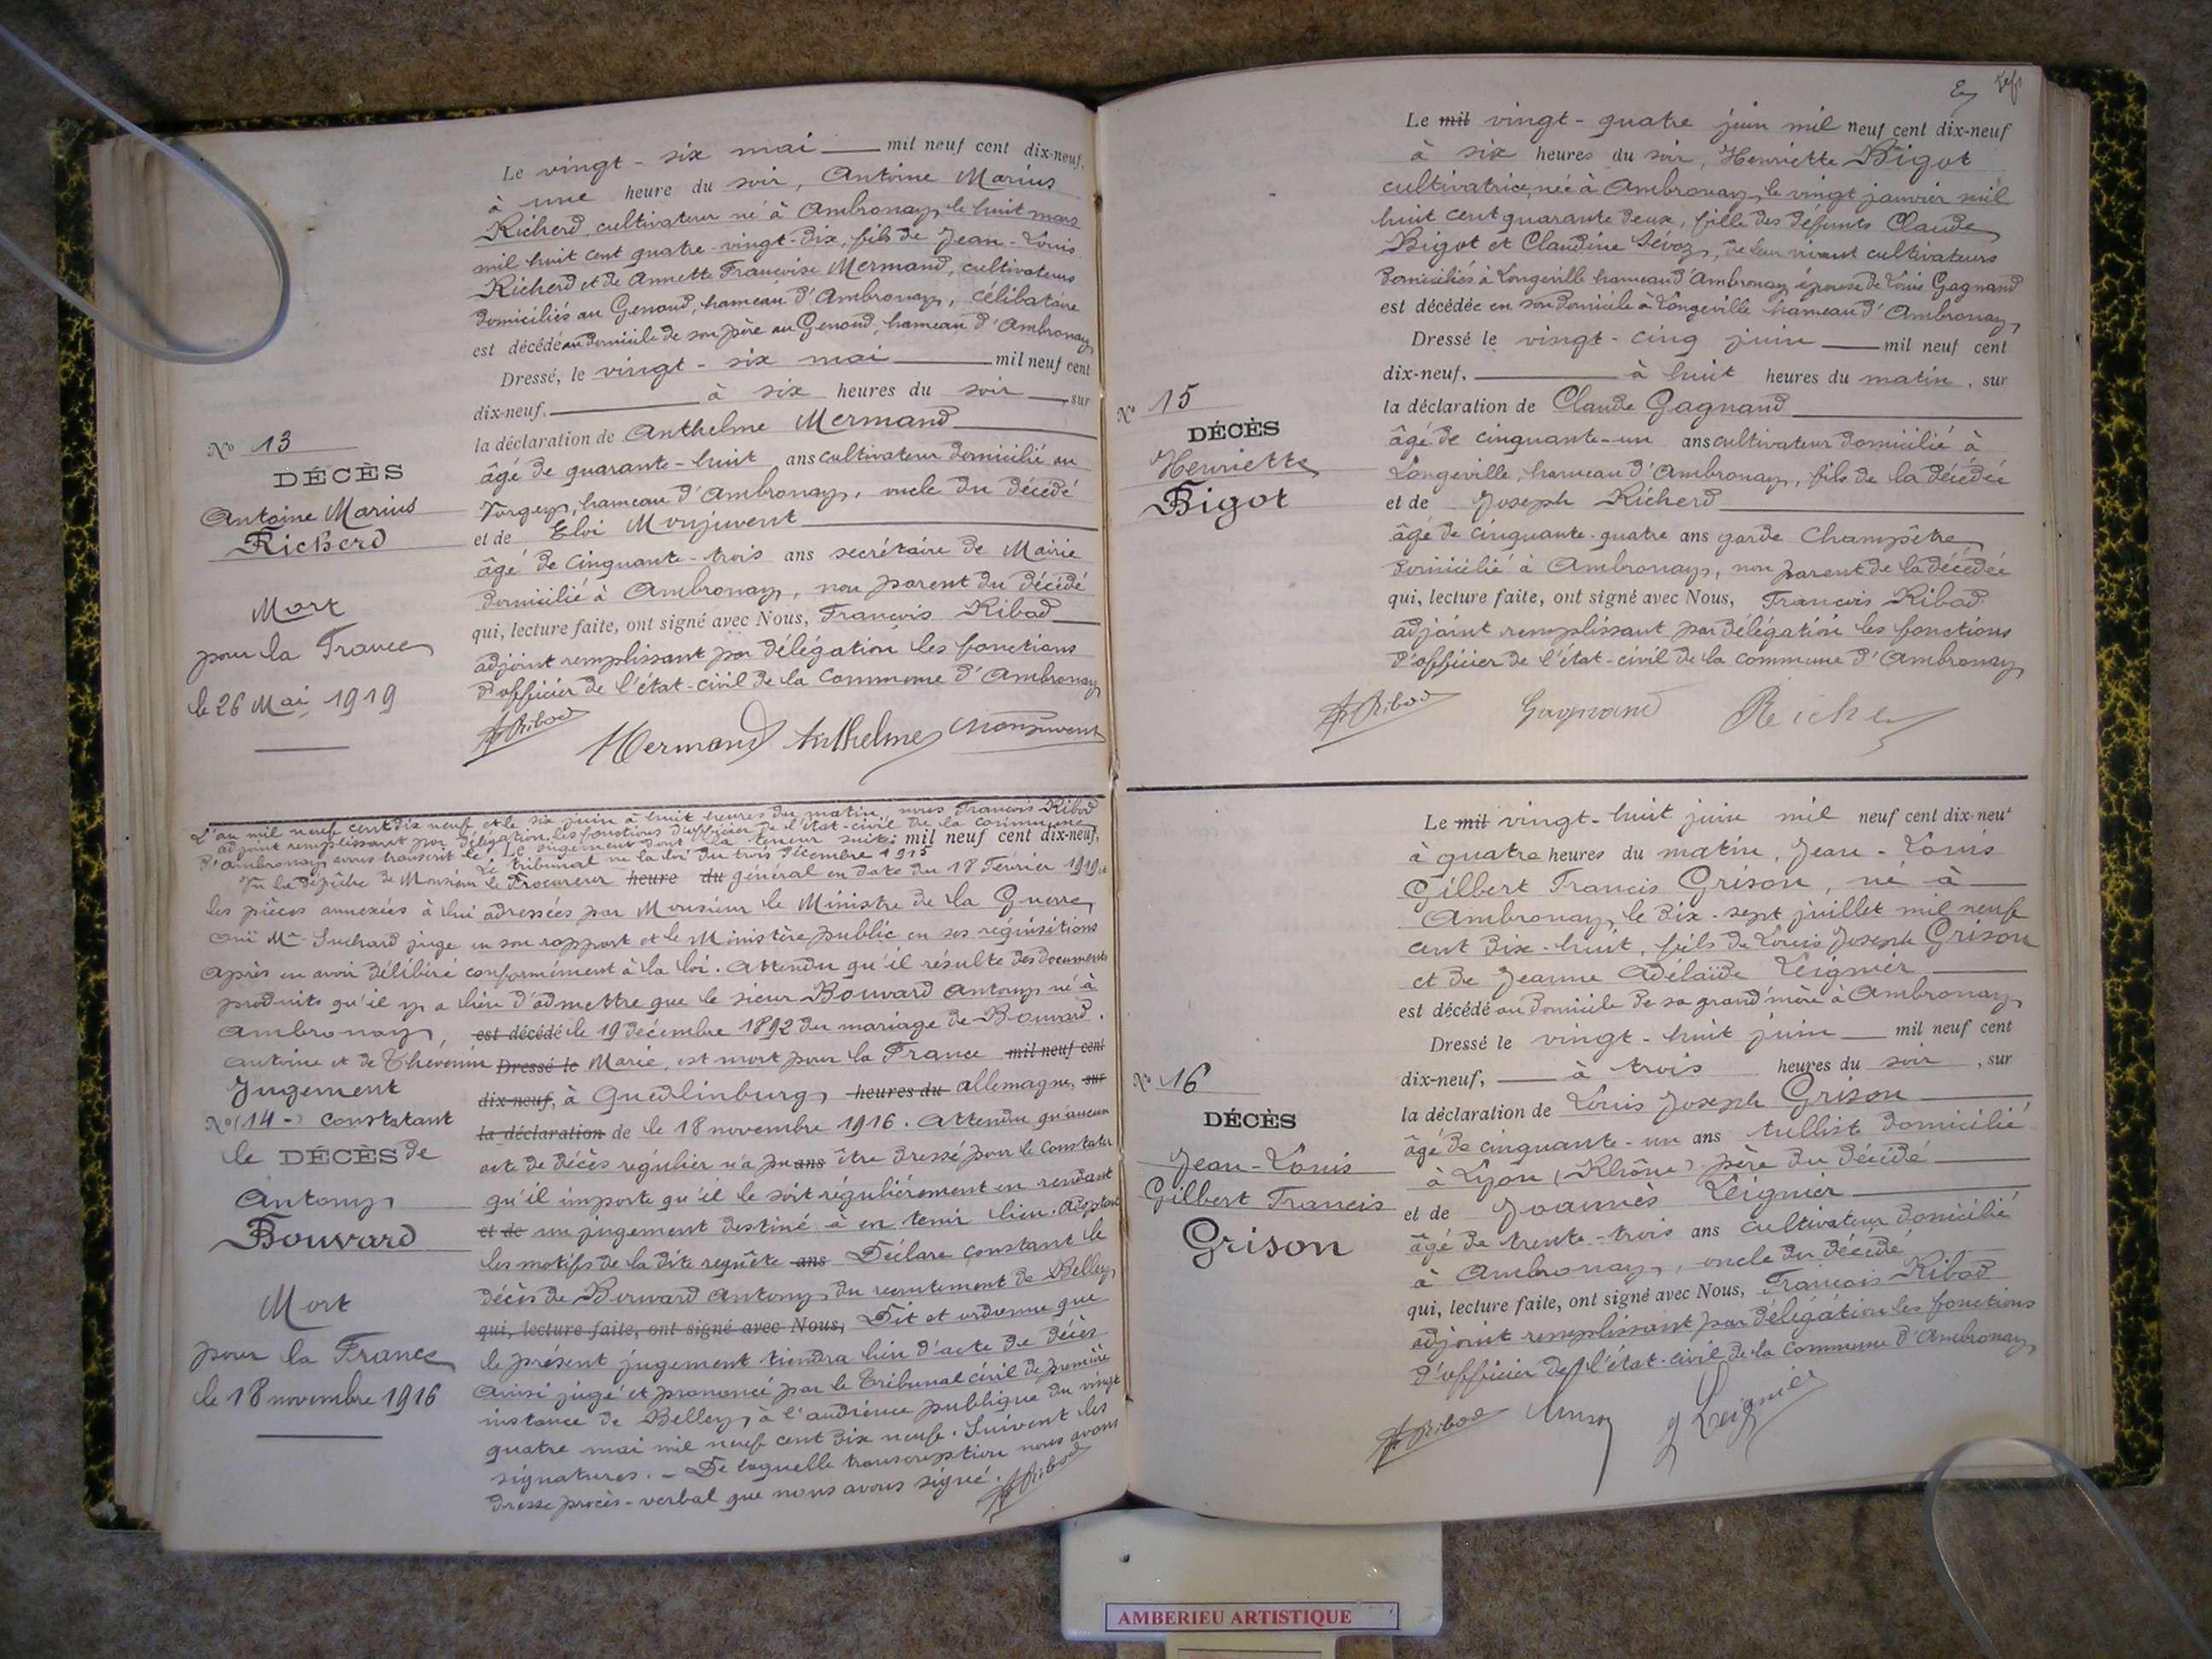 Le vingt-six mai mil neuf cent dix-neuf,
à une heure du soir, Antoine Marius
Richerd, cultivateur né à Ambronay, le huit mars
mil huit cent quatre-vingt-dix, fils de Jean-Louis
Richerd et de Annette Françoise Mermand, cultivateurs
domiciliés au Genoud, hameau d'Ambronay, célibataire
est décédé au domicile de son père au Genoud, hameau d'Ambronay
Dressé, le vingt-six mai mil neuf cent
dix-neuf, à six heures du soir, sur
la déclaration de Anthelme Mermand
âgé de quarante-huit ans cultivateur domicilié au
hameau d'Ambronay, oncle du décédé
et de Eloi Monjuvent
âgé de cinquante-trois ans secrétaire de Mairie
domicilié à Ambronay, non parent du décédé
qui, lecture faite, ont signé avec Nous, François Ribod
adjoint remplissant par délégation les fonctions
d'officier de l'état-civil de la Commune d'Ambronay
Ribod Mermand Anthelme Monjuvent
No 13
DÉCÈS
Antoine Marius
Richerd
Mort
pour la France
le 26 Mai 1919
L'an mil neuf cent dix neuf et le six juin à huit heures du matin, nous François Ribod
adjoint remplissant par délégation les fonctions d'officier de l'état-civil de la commune
d'Ambronay avons transcrit le jugement dont la teneur suit: mil neuf cent dix-neuf,
Le tribunal vu la loi du trois décembre 1915
Vu la dépêche de Monsieur le Procureur heure du général en date du 18 Février 1919 et
les pièces annexées à lui adressées par Monsieur le Ministre de la Guerre,
Ouï Mr Suchard juge en son rapport et le Ministère public en ses réquisitions
Après en avoir délibéré conformément à la loi. Attendu qu'il résulte des documents
produits qu'il y a lieu d'admettre que le sieur Bouvard Antony né à
Ambronay, est décédé le 19 décembre 1892 du mariage de Bouvard
Antoine et de Thévenin Dressé le Marie, est mort pour la France mil neuf cent
dix-neuf, à Quedlinburg, heures du allemagne, sur
la déclaration de le 18 novembre 1916. Attendu qu'aucun
acte de décès régulier n'a pu ans être dressé pour le constater
qu'il importe qu'il le soit régulièrement en rendant
et de un jugement destiné à en tenir lieu. Adoptant
les motifs de la dite requête ans Déclare constant le
décès de Bouvard Antony du recrutement de Belley,
qui, lecture faite, ont signé avec Nous, Dit et ordonne que
le présent jugement tiendra lieu d'acte de décès
Ainsi jugé et prononcé par le Tribunal civil de première
instance de Belley, à l'audience publique du vingt
quatre mai mil neuf cent dix neuf. Suivent les
signatures. - De laquelle transcription nous avons
dressé procès-verbal que nous avons signé. Ribod
Jugement
No (14-) constatant
le DÉCÈS de
Antony
Bouvard
Mort
pour la France
le 18 novembre 1916
Le mil vingt-quatre juin mil neuf cent dix-neuf
à six heures du soir, Henriette Bigot
cultivatrice, née à Ambronay, le vingt janvier mil
huit cent quarante deux, fille des défunts Claude
Bigot et Claudine Sévoz, de leur vivant cultivateurs
domiciliés à Longeville hameau d'Ambronay épouse de Louis Gagnand
est décédée en son domicile à Longeville hameau d'Ambronay,
Dressé le vingt-cinq juin mil neuf cent
dix-neuf, à huit heures du matin, sur
la déclaration de Claude Gagnand
âgé de cinquante-un ans cultivateur domicilié à
Longeville, hameau d'Ambronay, fils de la décédée
et de Joseph Richerd
âgé de cinquante-quatre ans garde Champêtre
domicilié à Ambronay, non parent de la décédée
qui, lecture faite, ont signé avec Nous, François Ribod
adjoint remplissant par délégation les fonctions
d'officier de l'état-civil de la commune d'Ambronay
Ribod Gagnand Richer
No 15
DÉCÈS
Henriette
Bigot
Le mil vingt-huit juin mil neuf cent dix-neuf
à quatre heures du matin, Jean-Louis
Gilbert Francis Grison, né à
Ambronay, le dix-sept juillet mil neuf
cent dix-huit, fils de Louis Joseph Grison
et de Jeanne Adélaïde Leignier
est décédé au domicile de sa grand'mère à Ambronay
Dressé le vingt-huit juin mil neuf cent
dix-neuf, à trois heures du soir, sur
la déclaration de Louis Joseph Grison
âgé de cinquante-un ans tulliste domicilié
à Lyon (Rhône) père du décédé
et de Joannès Leignier
âgé de trente-trois ans cultivateur domicilié
à Ambronay, oncle du décédé
qui, lecture faite, ont signé avec Nous, François Ribod
adjoint remplissant par délégation les fonctions
d'officier de l'état-civil de la commune d'Ambronay
Ribod J Leignier
No 16
DÉCÈS
Jean-Louis
Gilbert Francis
Grison
AMBERIEU ARTISTIQUE